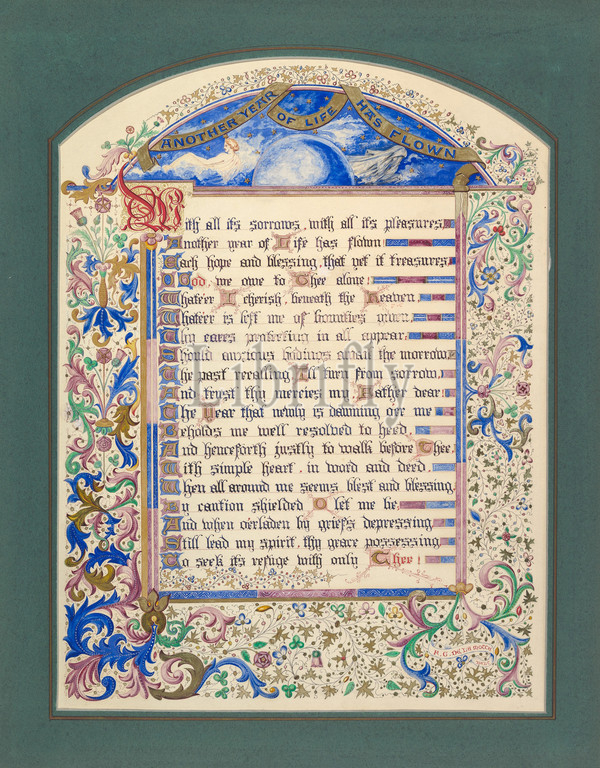 ANOTHER YEAR OF LIFE HAS FLOWN
With all it's sorrows, with all it's pleasures,
Another year of Life has flown
Each hope and blessing, that yet it treasures,
O God, we owe to Thee alone;
Whate'er I cherish, beneath the Heaven,
Whate'er is left me of bounties given,
Thy cares protecting in all appear;
Should anxious bodings assail the morrow
The past recalling from sorrow,
And trust thy mercies my Father dear
The Year that newly is dawning o'er me
Beholds me well resolved to heed,
And henceforth justly to walk before Thee
With simple heart, in word and deed,
When all around me seems blest and blessing
By caution shielded O let me be;
And when o'erladen by grief's depressing,
Still lead my spirit, thy grace possessing
To seek it's refuge with only Thee!
Librifly